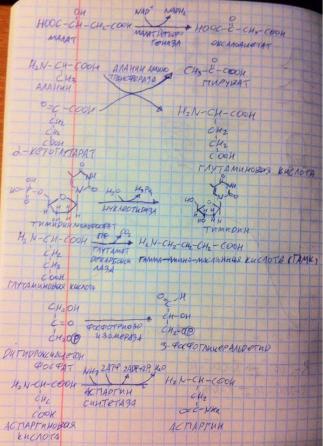 OH
HOOC-CH-CH₂-COOH NAD⁺ NADH₂ HOOC-C-CH₂-COOH
O
МАЛАТ ОКСАЛОАЦЕТАТ
H₂N-CH-COOH АЛАНИН АМИНО CH₃-C-COOH
CH₃ ТРАНСФЕРАЗА
АЛАНИН ПИРУВАТ
O=C-COOH H₂N-CH-COOH
CH₂ CH₂
CH₂ CH₂
COOH COOH
2-КЕТОГЛУТАРАТ ГЛУТАМИНОВАЯ КИСЛОТА
H₂O H₃PO₄
НУКЛЕОТИДАЗА
ТИМИДИН
H₂N-CH-COOH CO₂ H₂N-CH₂-CH₂-CH₂-COOH
CH₂ ГЛУТАМАТ
CH₂ ДЕКАРБОКСИ
COOH ЛАЗА
ГЛУТАМИНОВАЯ КИСЛОТА
CH₂OH O H
C=O CH-OH
CH₂O(P) ФОСФОТРИОЗО CH₂-O(P)
ИЗОМЕРАЗА
ДИГИДРОКСИАЦЕТОН 3-ФОСФОГЛИЦЕРАЛЬДЕГИД
ФОСФАТ
H₂N-CH-COOH NH₃ H₂O H₂N-CH-COOH
CH₂ АСПАРГИН CH₂
COOH СИНТЕТАЗА O=C-NH₂
АСПАРГИНОВАЯ АСПАРГИН
КИСЛОТА